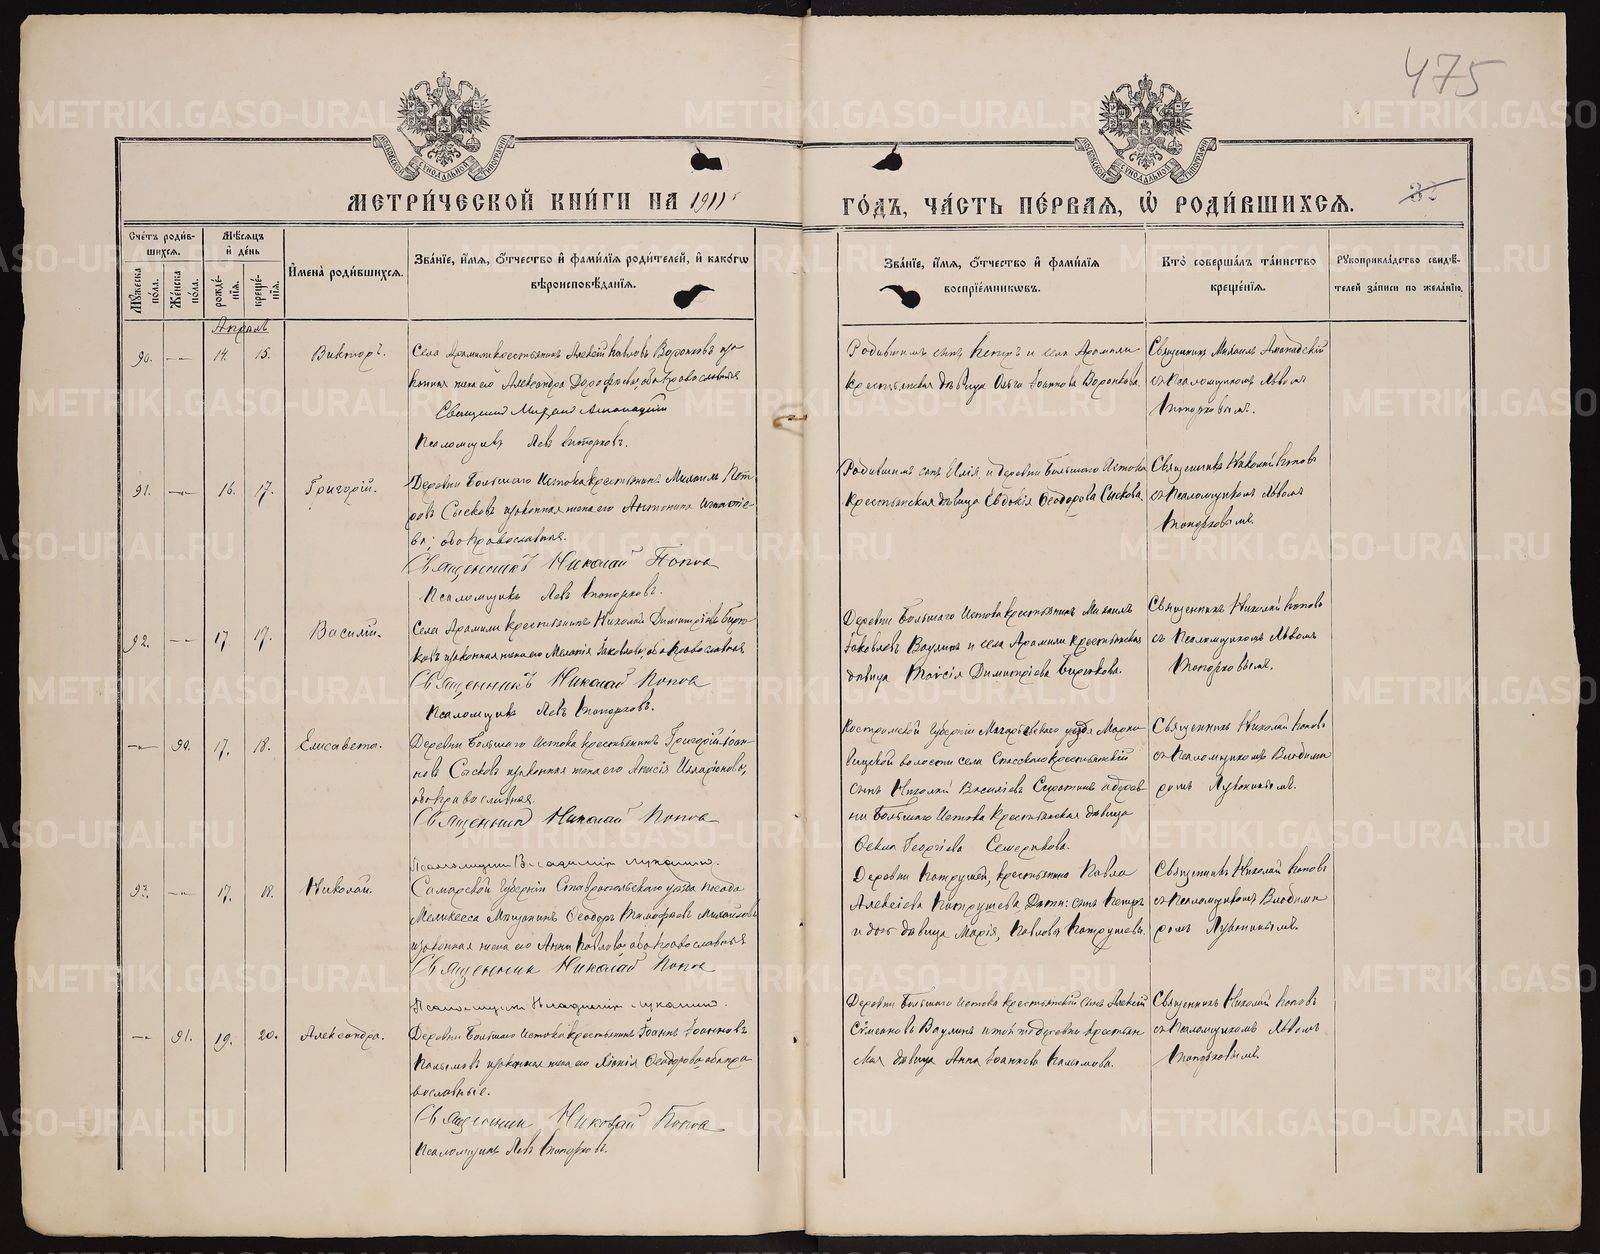 475
МЕТРИ́ЧЕСКОЙ КНИ́ГИ НА 1911 г
ГО́ДЪ, ЧА́СТЬ ПЕ́РВАЯ, Ѿ РОДИ́ВШИХСЯ.
Сче́тъ роди́в-
шихся.
Му́жеска по́ла.
Же́нска по́ла.
Мѣ́сяцъ и де́нь
рожде́-нія.
креще́-нія.
Имена̀ роди́вшихся.
Зва́нїе, и́мя, ѻ҆́тчество и҆ фами́лїя роди́телей, и҆ како́гѡ
вѣроисповѣ́данїя.
Зва́нїе, и́мя, ѻ҆́тчество и҆ фами́лїя
воспрїе́мниковъ.
Кто̀ соверша́лъ та́инство
креще́нїя.
Рукоприкла́дство свидѣ́-
телей за́писи по жела́нїю.
Апрѣль
90. 14. 15. Викторъ.
Села Арамили крестьянинъ Алексѣй Павловъ Воронковъ и за-
конная жена его Александра Дорофеева, оба православные
Священникъ Михаилъ
Псаломщикъ Левъ Топорковъ.
Родившимъ сынъ Петръ и села Арамили
крестьянская дѣвица Ольга Іоаннова Воронкова.
Священникъ Михаилъ
съ Псаломщикомъ Львомъ
Топорковымъ.
91. 16. 17. Григорій.
Деревни Большаго Истока крестьянинъ Михаилъ Пет-
ровъ Сысковъ и законная жена его Антонина Игнатіе-
ва; оба православные.
Священникъ Николай Попов
Псаломщикъ Левъ Топорковъ.
сынъ Илія и деревни Большаго Истока
крестьянская дѣвица Евдокія Ѳеодорова Сыскова.
Священникъ Николай Поповъ
съ Псаломщикомъ Львомъ
Топорковымъ.
92. 17. 17. Василій.
Села Арамили крестьянинъ Николай Димитріевъ Бирю-
ковъ и законная жена его Меланія Іаковлева, оба православные
Священникъ Николай Попов
Псаломщикъ Левъ Топорковъ.
Деревни Большаго Истока крестьянинъ Михаилъ
Іаковлевъ Ваулинъ и села Арамили крестьянская
дѣвица Таисія Димитріева Бирюкова.
Священникъ Николай Поповъ
съ Псаломщикомъ Львомъ
Топорковымъ.
90. 17. 18. Елисавета.
Деревни Большаго Истока крестьянинъ Григорій Іоан-
новъ Сысковъ и законная жена его Анисія Илларіонова,
оба православные.
Священник Николай Попов
Псаломщик Владимір Лукании.
Костромской губерніи Макарьевскаго уѣзда Марко-
вицкой волости села Спасскаго крестьянскій
сынъ Николай Василіевъ Сиротинъ и дерев-
ни Большаго Истока крестьянская дѣвица
Ѳекла Георгіева Семерикова.
Священникъ Николай Поповъ
съ Псаломщикомъ Владими
ромъ
93. 17. 18. Николай.
Самарской губерніи Ставропольскаго уѣзда посада
Мелекесса мѣщанинъ Ѳеодоръ Тимофеевъ Михайловъ
и законная жена его Анна Павлова, оба православные
Священник Николай Попов
Псаломщик Владимір
Деревни Патрушей, крестьянина Павла
Алексѣева Патрушева дѣти: сынъ Петръ
и дочь дѣвица Марія, Павловы Патрушевы.
Священникъ Николай Поповъ
съ Псаломщикомъ Владими
ромъ
91. 19. 20. Александра.
Деревни Большаго Истока крестьянинъ Іоаннъ Іоанновъ
Палымовъ и законная жена его Ксенія Ѳеодорова, оба пра-
вославные.
Священник Николай Попов
Псаломщикъ Левъ Топорковъ.
Деревни Большаго Истока крестьянскій сынъ Алексѣй
Сѵмеоновъ Ваулинъ и той же деревни крестьян
ская дѣвица Анна Іоаннова Палымова.
Священникъ Николай Поповъ
съ Псаломщикомъ Львомъ
Топорковымъ.
METRIKI.GASO-URAL.RU